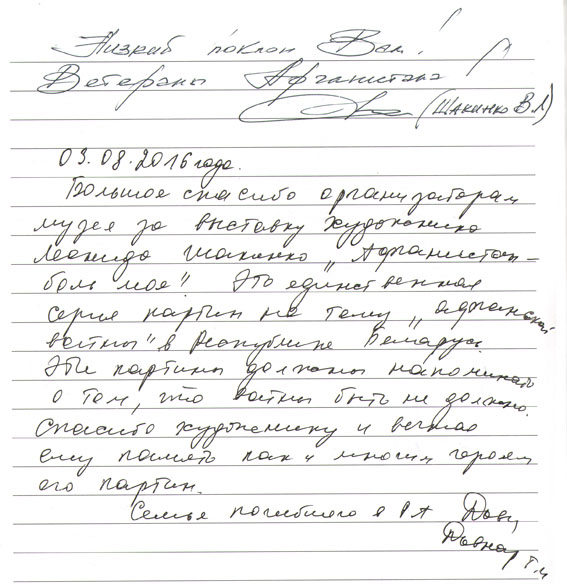 Низкий поклон Вам!
Ветераны Афганистана
(Шакинко В.Л)
03.08.2016 года.
Большое спасибо организаторам
музея за выставку художника
Леонида Шакинко „Афганистан –
боль моя". Это единственная
серия картин на тему „афганской
войны" в Республике Беларусь.
Эти картины должны напоминать
о том, что войны быть не должно.
Спасибо художнику и вечная
ему память как и многим героям
его картин.
Семья погибшего в РА
Т.И